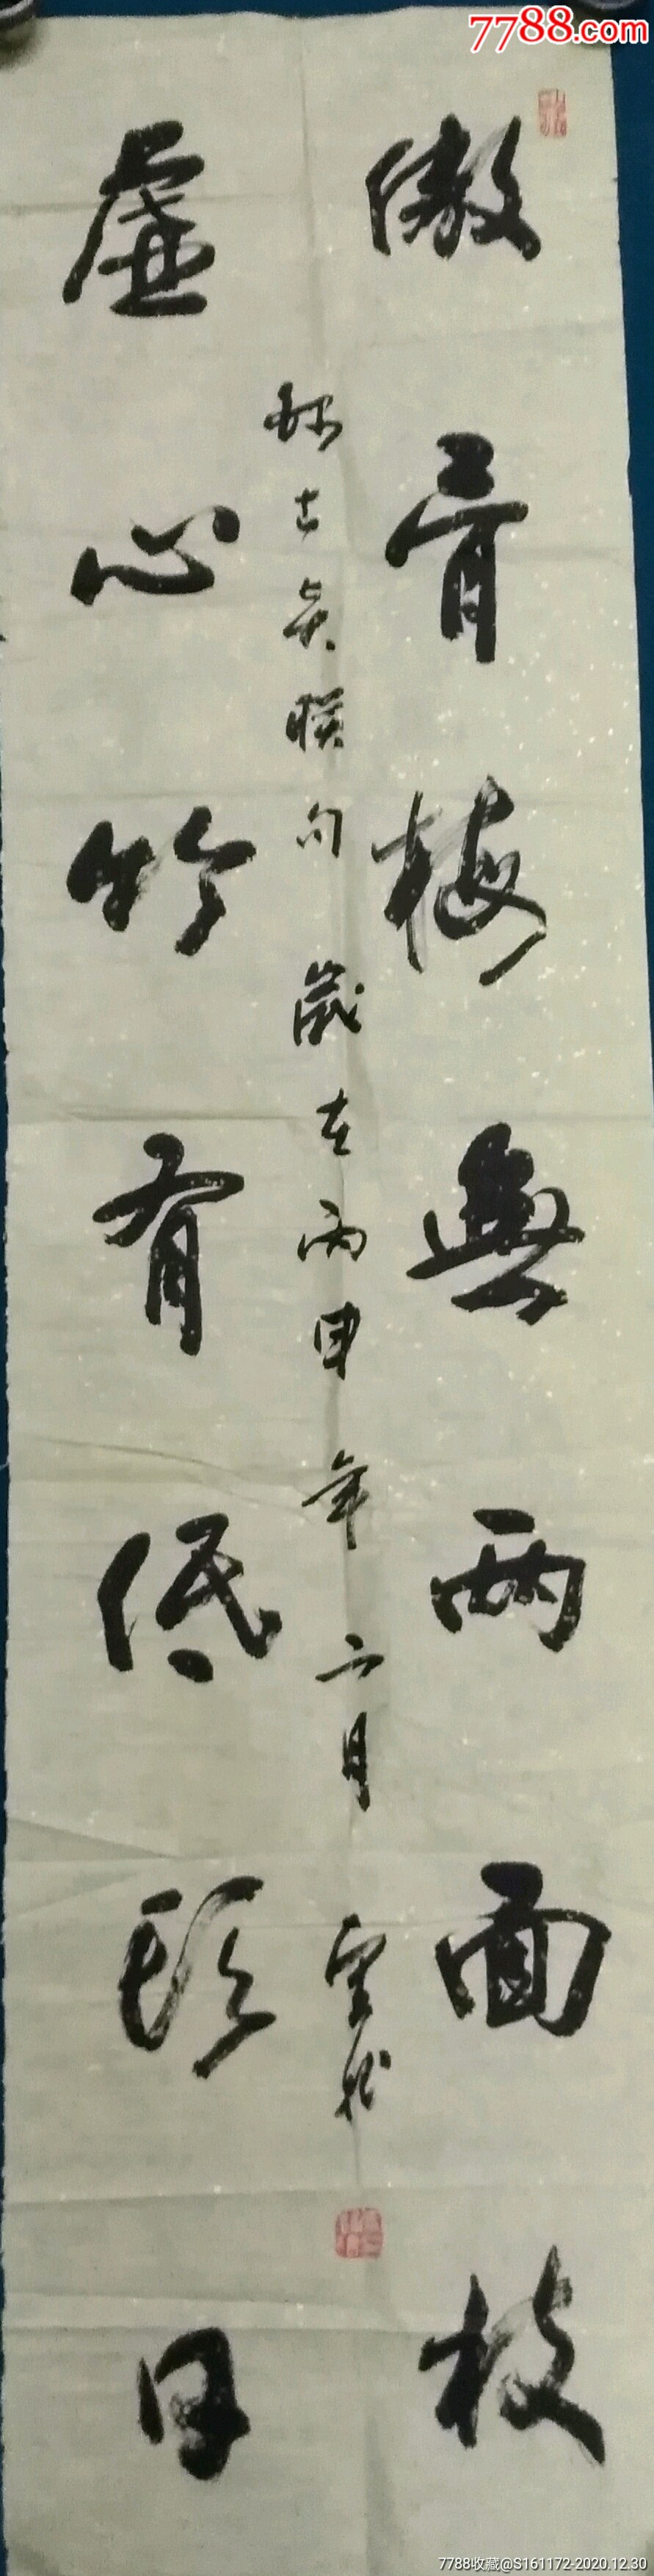 7788.com
傲骨梅無兩面枝
虛心竹有低頭日
联句 歲在丙申年 月
7788收藏@S161172-2020.12.30